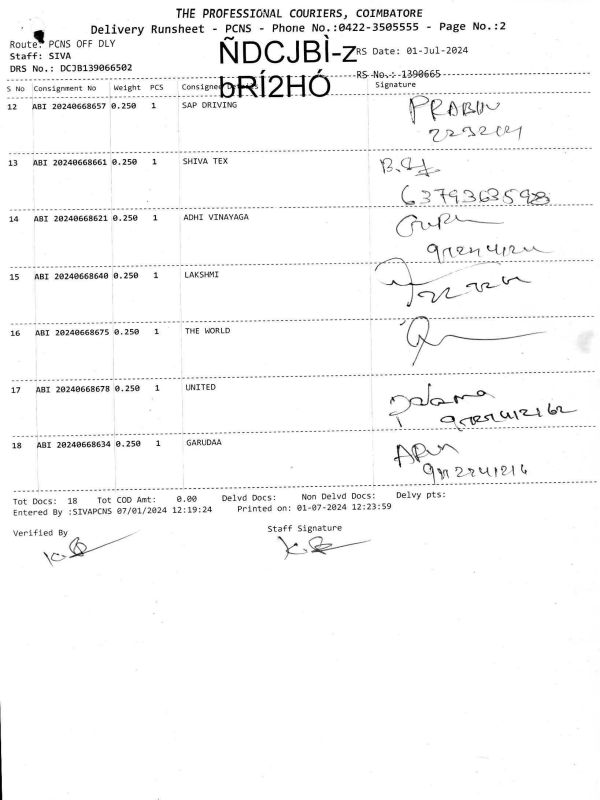 THE PROFESSIONAL COURIERS, COIMBATORE
Delivery Runsheet - PCNS - Phone No.:0422-3505555 - Page No.:2
Route: PCNS OFF DLY
ÑDCJBÌ-z
RS Date: 01-Jul-2024
Staff: SIVA
DRS No.: DCJB139066502
bRÍ2HÓ
RS No.: 1390665
S No Consignment No Weight PCS Consignee Details Signature
12 ABI 20240668657 0.250 1 SAP DRIVING PRABIN
13 ABI 20240668661 0.250 1 SHIVA TEX
14 ABI 20240668621 0.250 1 ADHI VINAYAGA
15 ABI 20240668640 0.250 1 LAKSHMI
16 ABI 20240668675 0.250 1 THE WORLD
17 ABI 20240668678 0.250 1 UNITED
18 ABI 20240668634 0.250 1 GARUDAA
Tot Docs: 18 Tot COD Amt: 0.00 Delvd Docs: Non Delvd Docs: Delvy pts:
Entered By :SIVAPCNS 07/01/2024 12:19:24 Printed on: 01-07-2024 12:23:59
Verified By Staff Signature